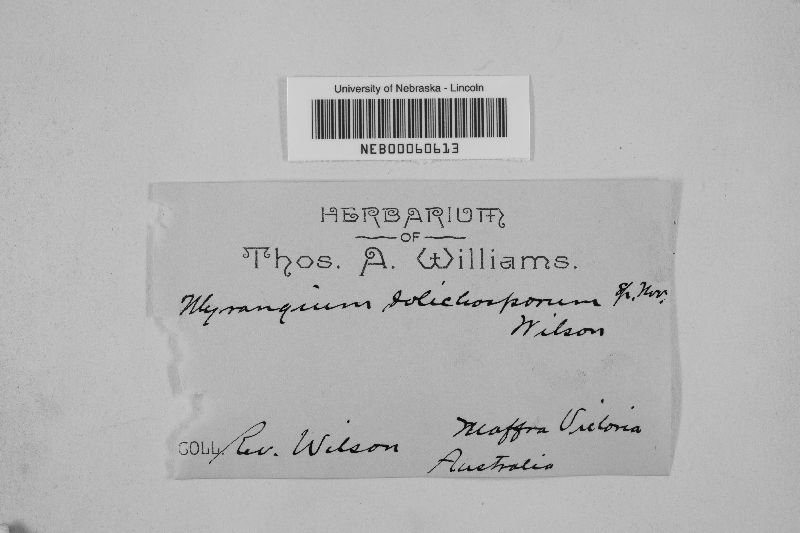 University of Nebraska - Lincoln
NEB00060613
HERBARIUM
OF
Thos. A. Williams.
Myrangium dolichosporum Sp. Nov.
Wilson
COLL. Rev. Wilson
Maffra Victoria
Australia